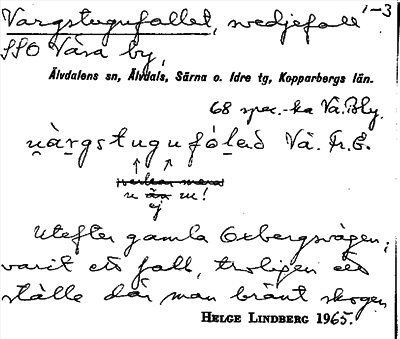 Vargstugufallet, svedjefall 1-3
SSO Våsa by,
Älvdalens sn, Älvdals, Särna o. Idre tg, Kopparbergs län.
68 spec.-ka Vå. Bly.
u̯àrgstugufólað Vå. Fr. E.
↑ ↑
u ej u!
Utefter gamla Oxbergsvägen;
varit ett fall, troligen ett
ställe där man bränt skogen
HELGE LINDBERG 1965.